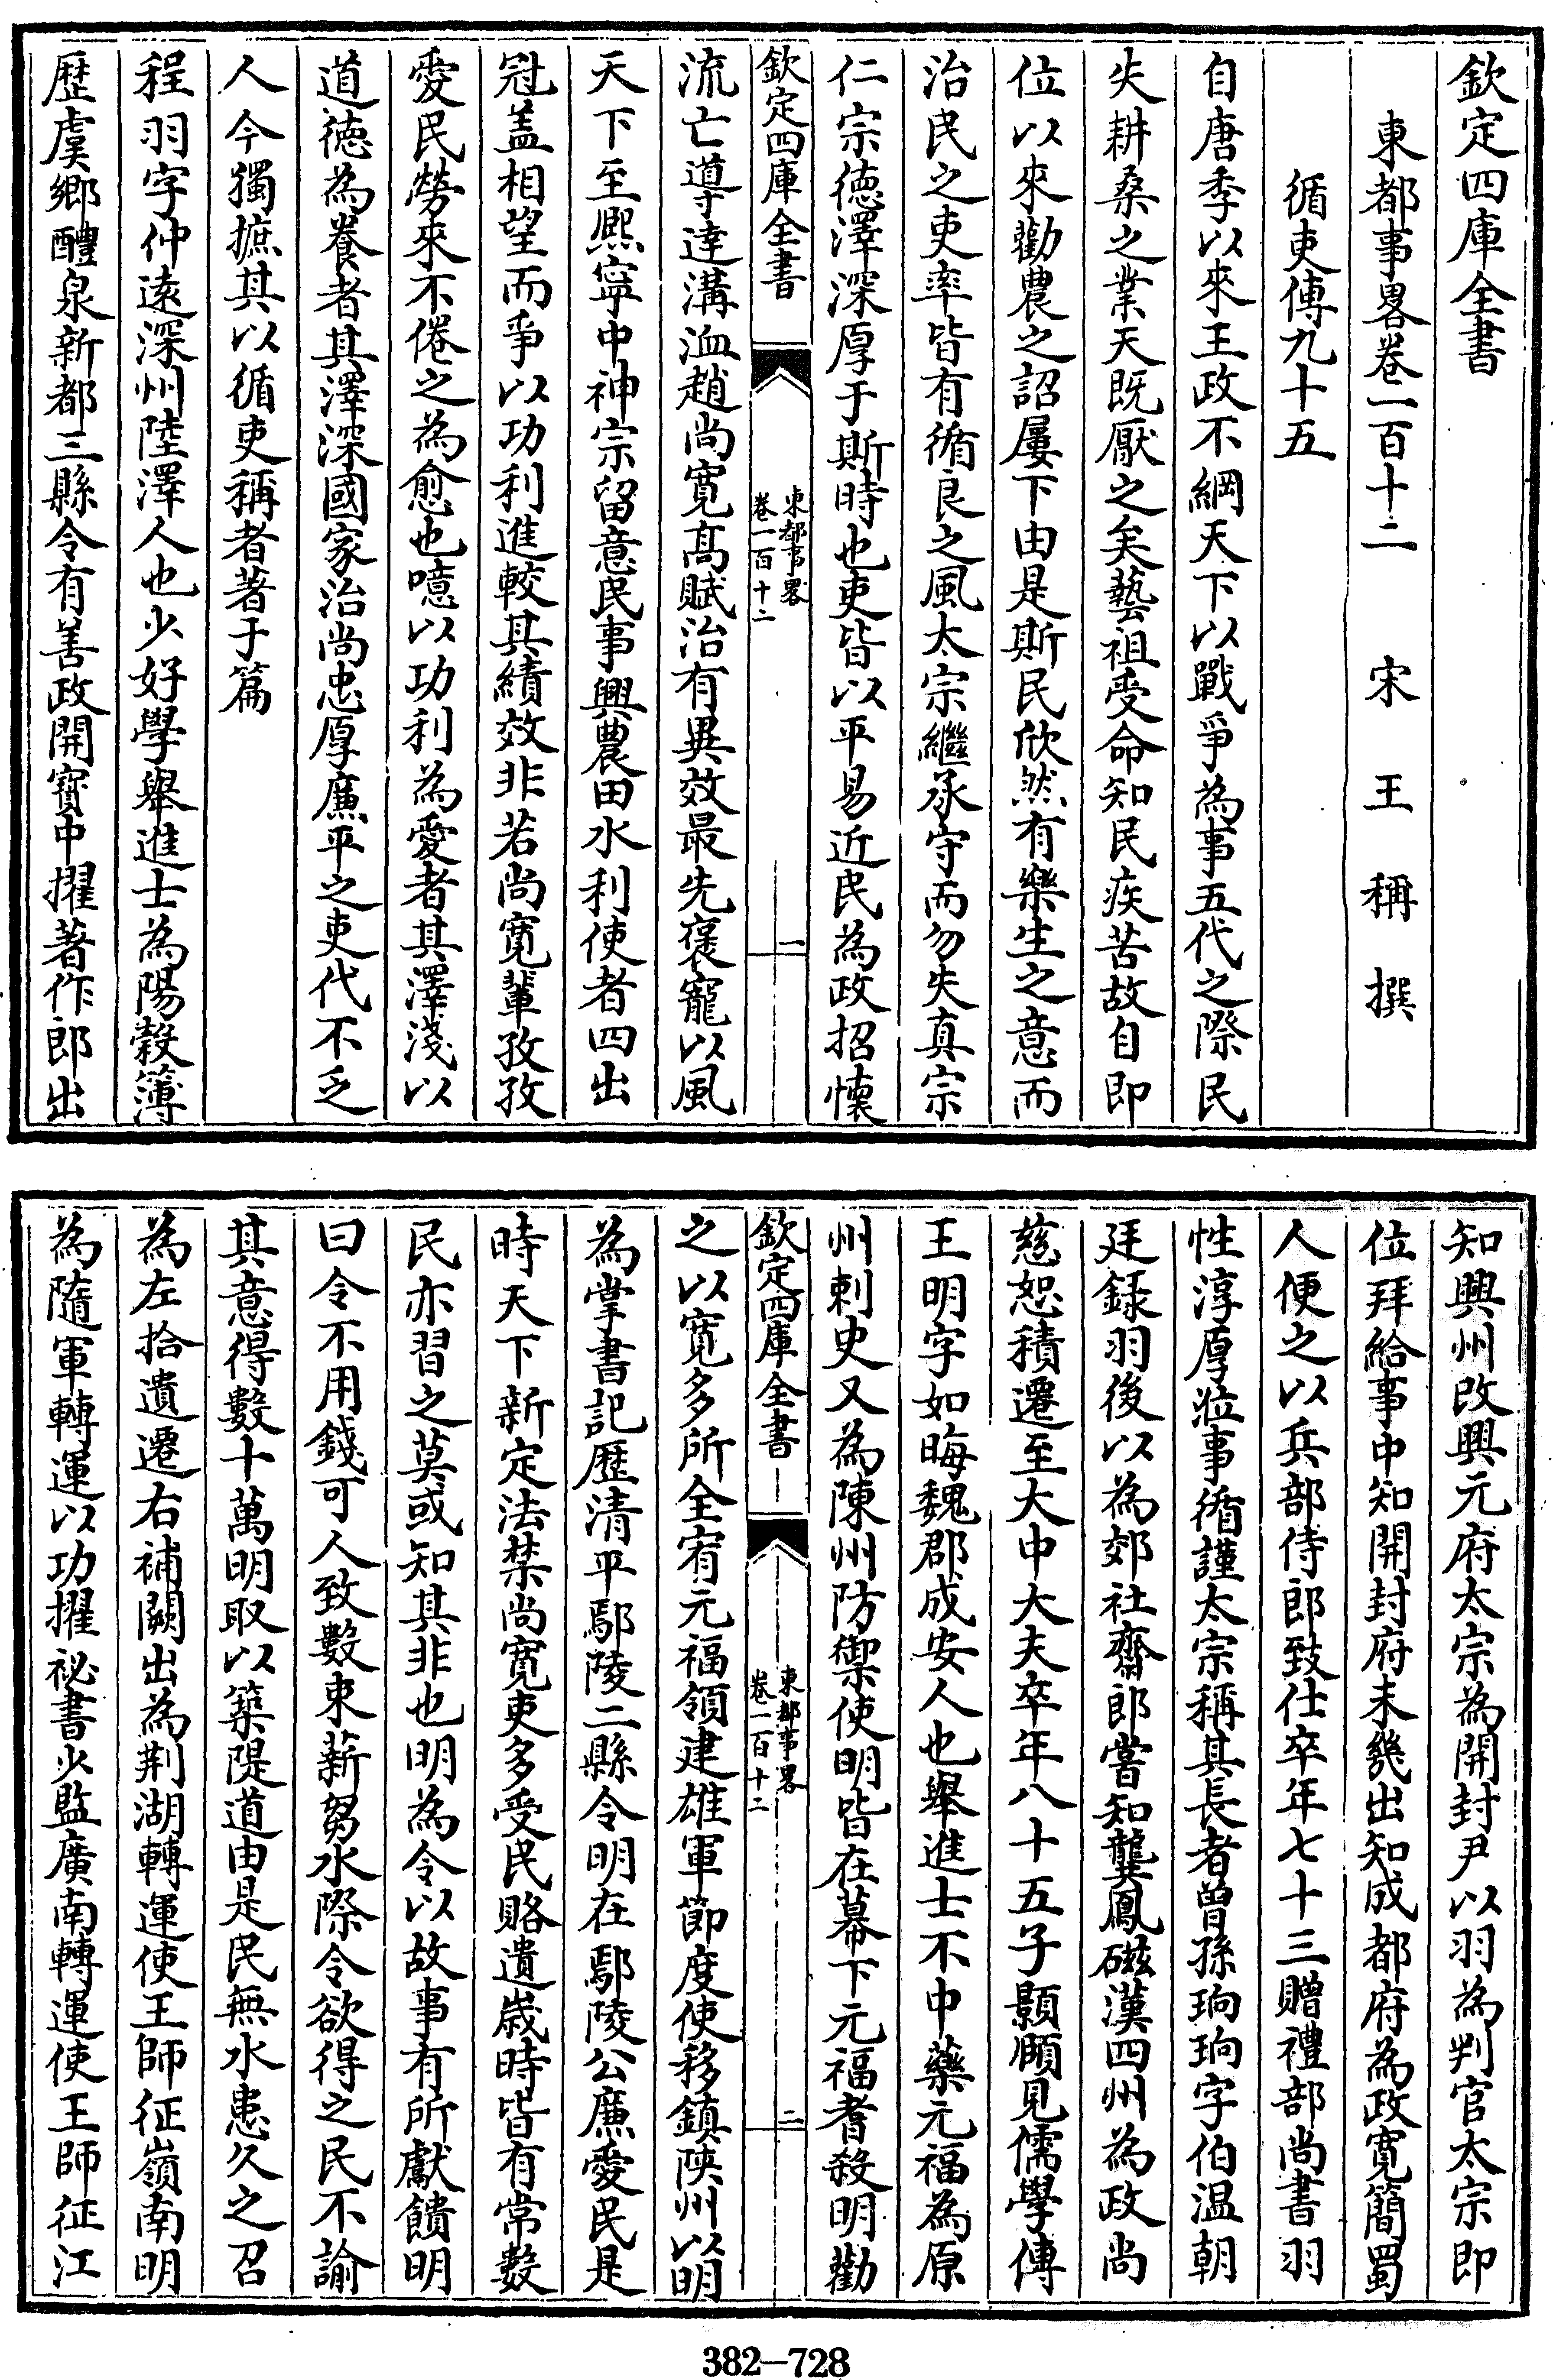 欽定四庫全書
東都事畧卷一百十二　宋　王　稱　撰
循吏傳九十五
自唐季以來王政不綱天下以戰爭為事五代之際民
失耕桑之業天既厭之矣藝祖受命知民疾苦故自即
位以來勸農之詔屢下由是斯民欣然有樂生之意而
治民之吏率皆有循良之風太宗繼承守而勿失真宗
仁宗德澤深厚于斯時也吏皆以平易近民為政招懷
欽定四庫全書
東都事畧
卷一百十二
一
流亡導達溝洫趙尚寛高賦治有異效最先褒寵以風
天下至熈寧中神宗留意民事興農田水利使者四出
冠盖相望而爭以功利進較其績效非若尚寛輩孜孜
愛民勞來不倦之為愈也噫以功利為愛者其澤淺以
道徳為養者其澤深國家治尚忠厚廉平之吏代不乏
人今獨摭其以循吏稱者著于篇
程羽字仲遠深州陸澤人也少好學舉進士為陽穀簿
歴虞鄉醴泉新都三縣令有善政開寳中擢著作郎出
知興州改興元府太宗為開封尹以羽為判官太宗即
位拜給事中知開封府未幾出知成都府為政寛簡蜀
人便之以兵部侍郎致仕卒年七十三贈禮部尚書羽
性淳厚涖事循謹太宗稱其長者曾孫珦珦字伯温朝
廷録羽後以為郊社齋郎嘗知龔鳳磁漢四州為政尚
慈恕積遷至大中大夫卒年八十五子顥頤見儒學傳
王明字如晦魏郡成安人也舉進士不中藥元福為原
州刺史又為陳州防禦使明皆在幕下元福耆殺明勸
欽定四庫全書
東都事畧
卷一百十二
二
之以寛多所全宥元福領建雄軍節度使移鎮陜州以明
為掌書記歴清平鄢陵二縣令明在鄢陵公廉愛民是
時天下新定法禁尚寛吏多受民賂遺歳時皆有常數
民亦習之莫或知其非也明為令以故事有所獻饋明
曰令不用錢可人致數束薪芻水際令欲得之民不諭
其意得數十萬明取以築隄道由是民無水患久之召
為左拾遺遷右補闕出為荆湖轉運使王師征嶺南明
為隨軍轉運以功擢祕書少監廣南轉運使王師征江
382—728